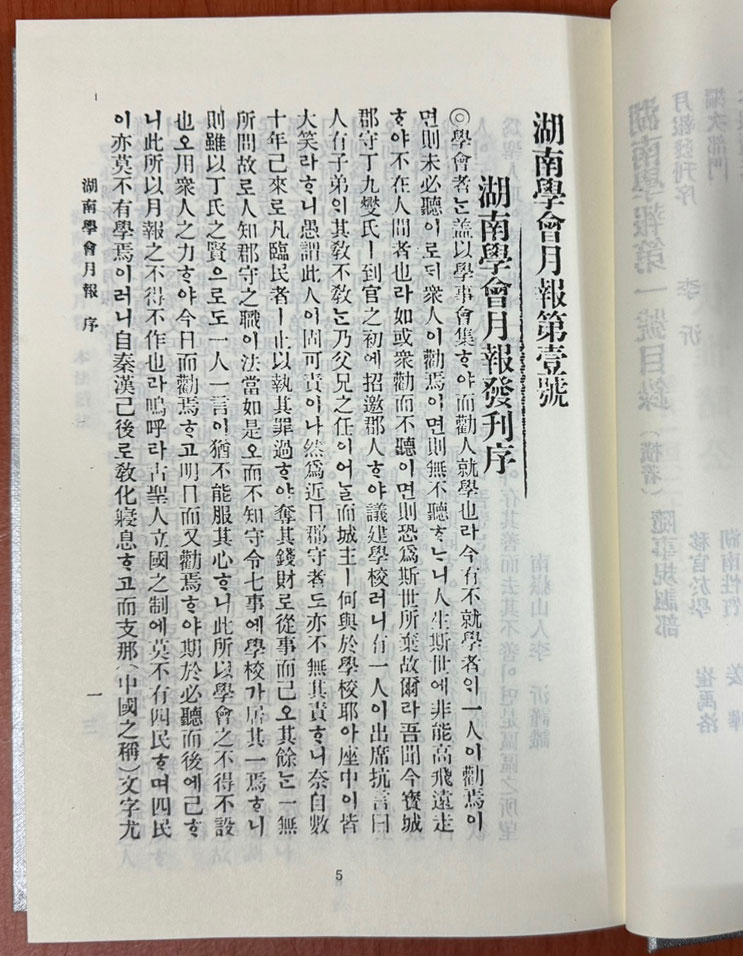 湖南學會月報第壹號
湖南學會月報發刊序
◎學會者ᄂᆞᆫ盖以學事會集ᄒᆞ야而勸人就學也라今有不就學者의一人이勸焉이
면則未必聽이로ᄃᆡ衆人이勸焉이면則無不聽ᄒᆞᄂᆞ니人生斯世에非能高飛遠走
ᄒᆞ야不在人間者也라如或衆勸而不聽이면則恐爲斯世所棄故爾라吾聞今寳城
郡守丁九燮氏ㅣ到官之初에招邀郡人ᄒᆞ야議建學校러니有一人이出席抗言曰
人有子弟의其敎不敎ᄂᆞᆫ乃父兄之任이어ᄂᆞᆯ而城主ㅣ何與於學校耶아座中이皆
大笑라ᄒᆞ니愚謂此人이固可責이나然爲近日郡守者도亦不無其責ᄒᆞ니奈自數
十年己來로凡臨民者ㅣ止以執其罪過ᄒᆞ야奪其錢財로從事而己오其餘ᄂᆞᆫ一無
所問故로人知郡守之職이法當如是오而不知守令七事에學校가居其一焉ᄒᆞ니
則雖以丁氏之賢으로도一人一言이猶不能服其心ᄒᆞ니此所以學會之不得不設
也오用衆人之力ᄒᆞ야今日而勸焉ᄒᆞ고明日而又勸焉ᄒᆞ야期於必聽而後에己ᄒᆞ
니此所以月報之不得不作也라嗚呼라古聖人立國之制에莫不有四民ᄒᆞ며四民
이亦莫不有學焉이러니自秦漢己後로敎化寢息ᄒᆞ고而支那(中國之稱)文字尤
湖南學會月報 序
一
5